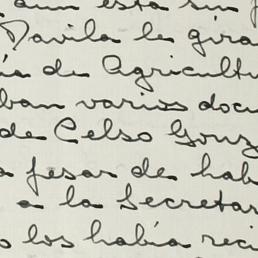 aun esta sin f
Davila le gira
ia de Agricultu
ban varios docu
de Celso Gonz
a pesar de hab
a la Secretar
o los había reci